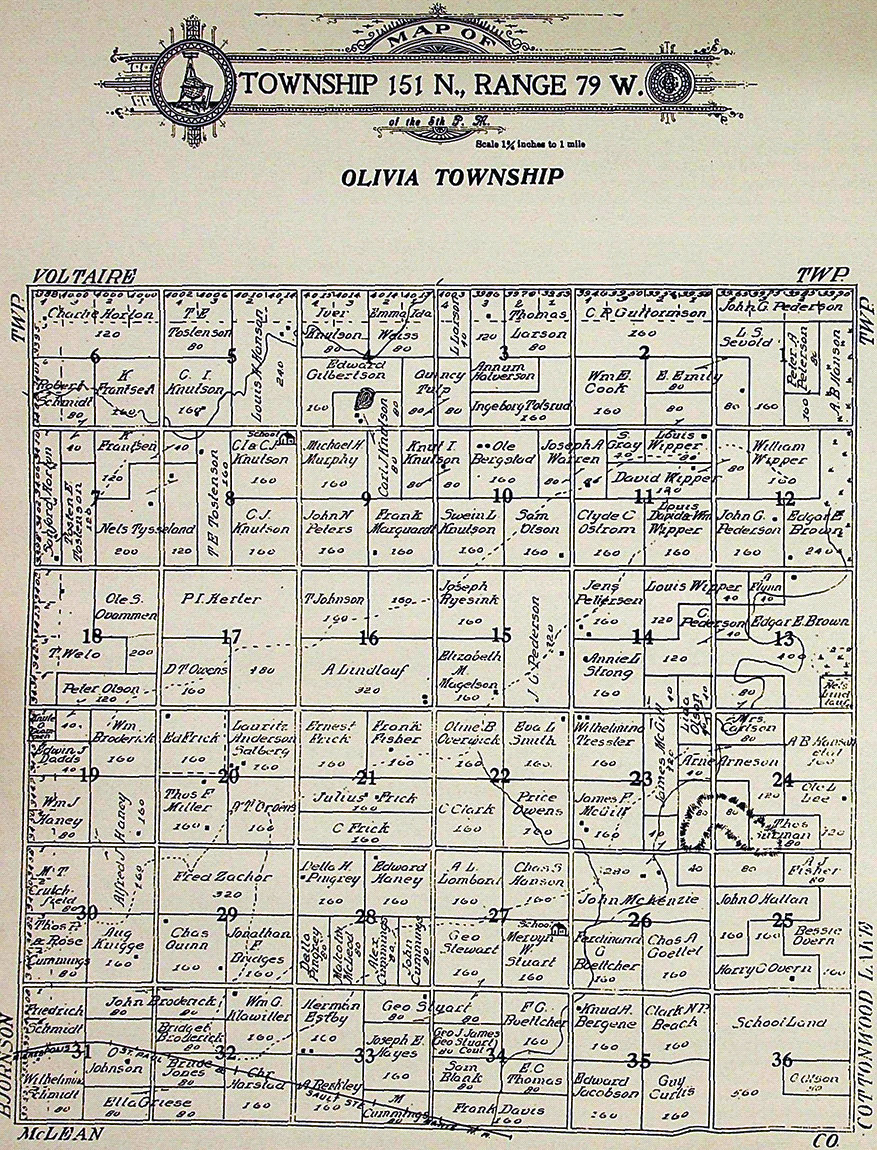 MAP OF
TOWNSHIP 151 N., RANGE 79 W.
of the 5th P. M.
Scale 1¾ inches to 1 mile
OLIVIA TOWNSHIP
VOLTAIRE TWP.
TWP.
TWP.
Charlie Horton
120
T E
Tostenson
80
Louis K Hanson
240
Iver
Knutson
80
Emma Ida
Waiss
80
L Larson
120
Thomas
Larson
80
C. P. Guttormson
160
John G. Pederson
L. S.
Sevold
Peter A
Pederson
160
A. B. Hanson
6
5
4
3
2
1
Robert
Schmidt
80
K
Frantsen
160
C. I.
Knutson
160
Edward
Gilbertson
160
Carl J Knutson
80
Quincy
Tulp
80
80
Annum
Halverson
Ingeborg Tofsrud
160
Wm E.
Cook
160
E. Emily
80
80
80
160
Sanford Horton
Tosten E.
Tostenson
K
Frantsen
120
40
T E Tostenson
160
School
Cla C. J
Knutson
160
Michael H.
Murphy
160
Knut I.
Knutson
80
Ole
Bergstad
160
Joseph A
Warren
S.
Gray
40
Louis
Wipper
David Wipper
120
William
Wipper
160
80
7
8
9
10
11
12
Nels Tysseland
200
120
C. J.
Knutson
160
John N
Peters
160
Frank
Marquardt
160
Swein I.
Knutson
160
Sam
Olson
160
Clyde C
Ostrom
160
Louis
David & Wm
Wipper
160
John G.
Pederson
160
Edgar E
Brown
240
Ole S.
Ovammen
P. I. Herler
T Johnson
160
160
Joseph
Ryesink
160
J. G. Pederson
320
Jens
Pettersen
160
Louis Wipper
120
40
A
Flynn
40
C.
Pederson
40
Edgar E. Brown
400
18
17
16
15
14
13
T. Welo
200
Peter Olson
120
D T Owens
160
480
A Lindlauf
320
Elizabeth
M
Magelson
160
Annie L
Strong
160
120
80
40
Wm
Broderick
160
Ed Frick
160
Lauritz
Anderson
Salberg
160
Ernest
Frick
160
Frank
Fisher
160
Oline B
Overwick
160
Eva L
Smith
160
Wilhelmina
Tressler
160
James McGill
120
Luda
Olson
Mrs.
Carlson
80
A B Hanson
etal
160
Edwin J
Dadds
40
Arne Arneson
19
20
21
22
23
24
Wm J
Haney
80
Alfred J Haney
160
160
Thos F
Miller
160
D T Owens
160
Julius Frick
160
C Frick
160
C Clark
160
Price
Owens
160
James P.
McGill
160
40
80
80
120
Ole L
Lee
Thos
80
120
M. T.
Crutch-
field
80
Fred Zachor
320
Della H.
Pingrey
160
Edward
Haney
160
A L
Lombard
160
Chas S
Hanson
160
280
John McKenzie
40
80
John O Hallan
160
A J
Fisher
80
30
29
28
27
26
25
Thos P.
& Rose
Cummings
80
Aug
Knigge
160
Chas
Guinn
160
Jonathan
F
Bridges
160
Della
Pingrey
80
Malcolm
McLeod
80
Alex
Cummings
80
John
Cummings
80
Geo
W
Stewart
160
School
Mervyn
Stuart
160
Ferdinand
G
Boettcher
160
Chas A
Goettel
160
160
Bessie
Overn
Harry C Overn
160
Friedrich
Schmidt
80
John Broderick
80
Bridget
Broderick
80
Wm G.
Klawiller
160
Herman
Estby
160
Geo Stuart
80
Joseph E.
Hayes
160
Geo J James
Geo Stuart
80
F G.
Boettcher
160
Knud H.
Bergene
160
Clark N P
Beach
160
School Land
31
32
33
34
35
36
Wilhelmina
Schmidt
80
O
Johnson
80
ST PAUL
Bruce
Jones
80
Chr
Harstad
160
A Berkley
160
SAULT STE
MARIE R. R.
M
Cummings
80
Sam
Blank
80
E. C
Thomas
80
Frank Davis
160
Edward
Jacobson
160
Guy
Curtis
160
560
O Olson
80
Ella Griese
80
80
BJORNSON
COTTONWOOD LAKE
McLEAN CO.